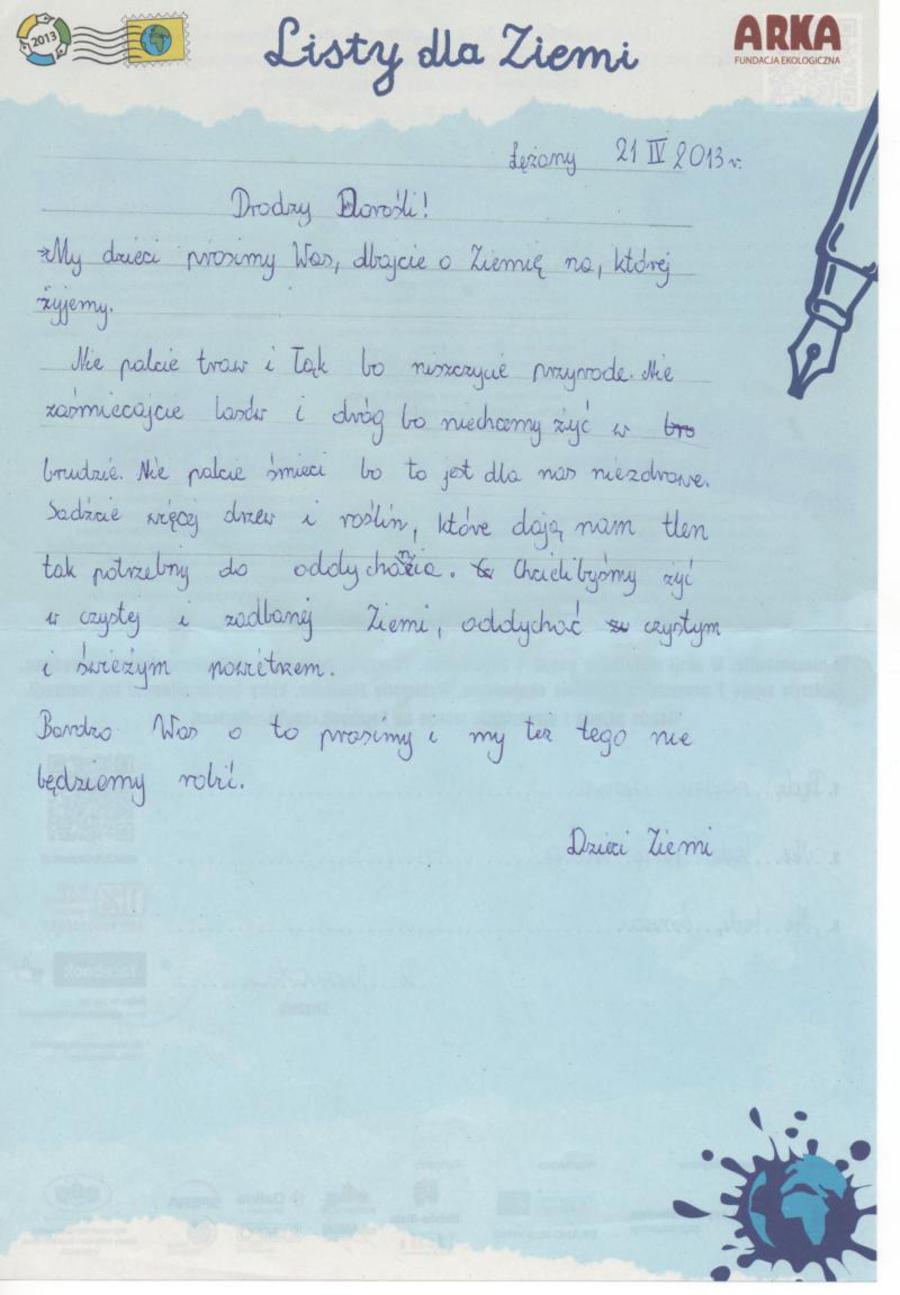 2013
Listy dla Ziemi
ARKA
FUNDACJA EKOLOGICZNA
Łężany 21 IV 2013 r.
Drodzy Dorośli!
My dzieci prosimy Was, dbajcie o Ziemię na, której
żyjemy.
Nie palcie traw i łąk bo niszczycie przyrode. Nie
zaśmiecajcie lasów i dróg bo niechcemy żyć w bro
brudzie. Nie palcie śmieci bo to jest dla nas niezdrowe.
Sadźcie więcej drzew i roślin, które dają nam tlen
tak potrzebny do oddychania. Chcielibyśmy żyć
w czystej i zadbanej Ziemi, oddychać czystym
i świeżym powietrzem.
Bardzo Was o to prosimy i my też tego nie
będziemy robić.
Dzieci Ziemi